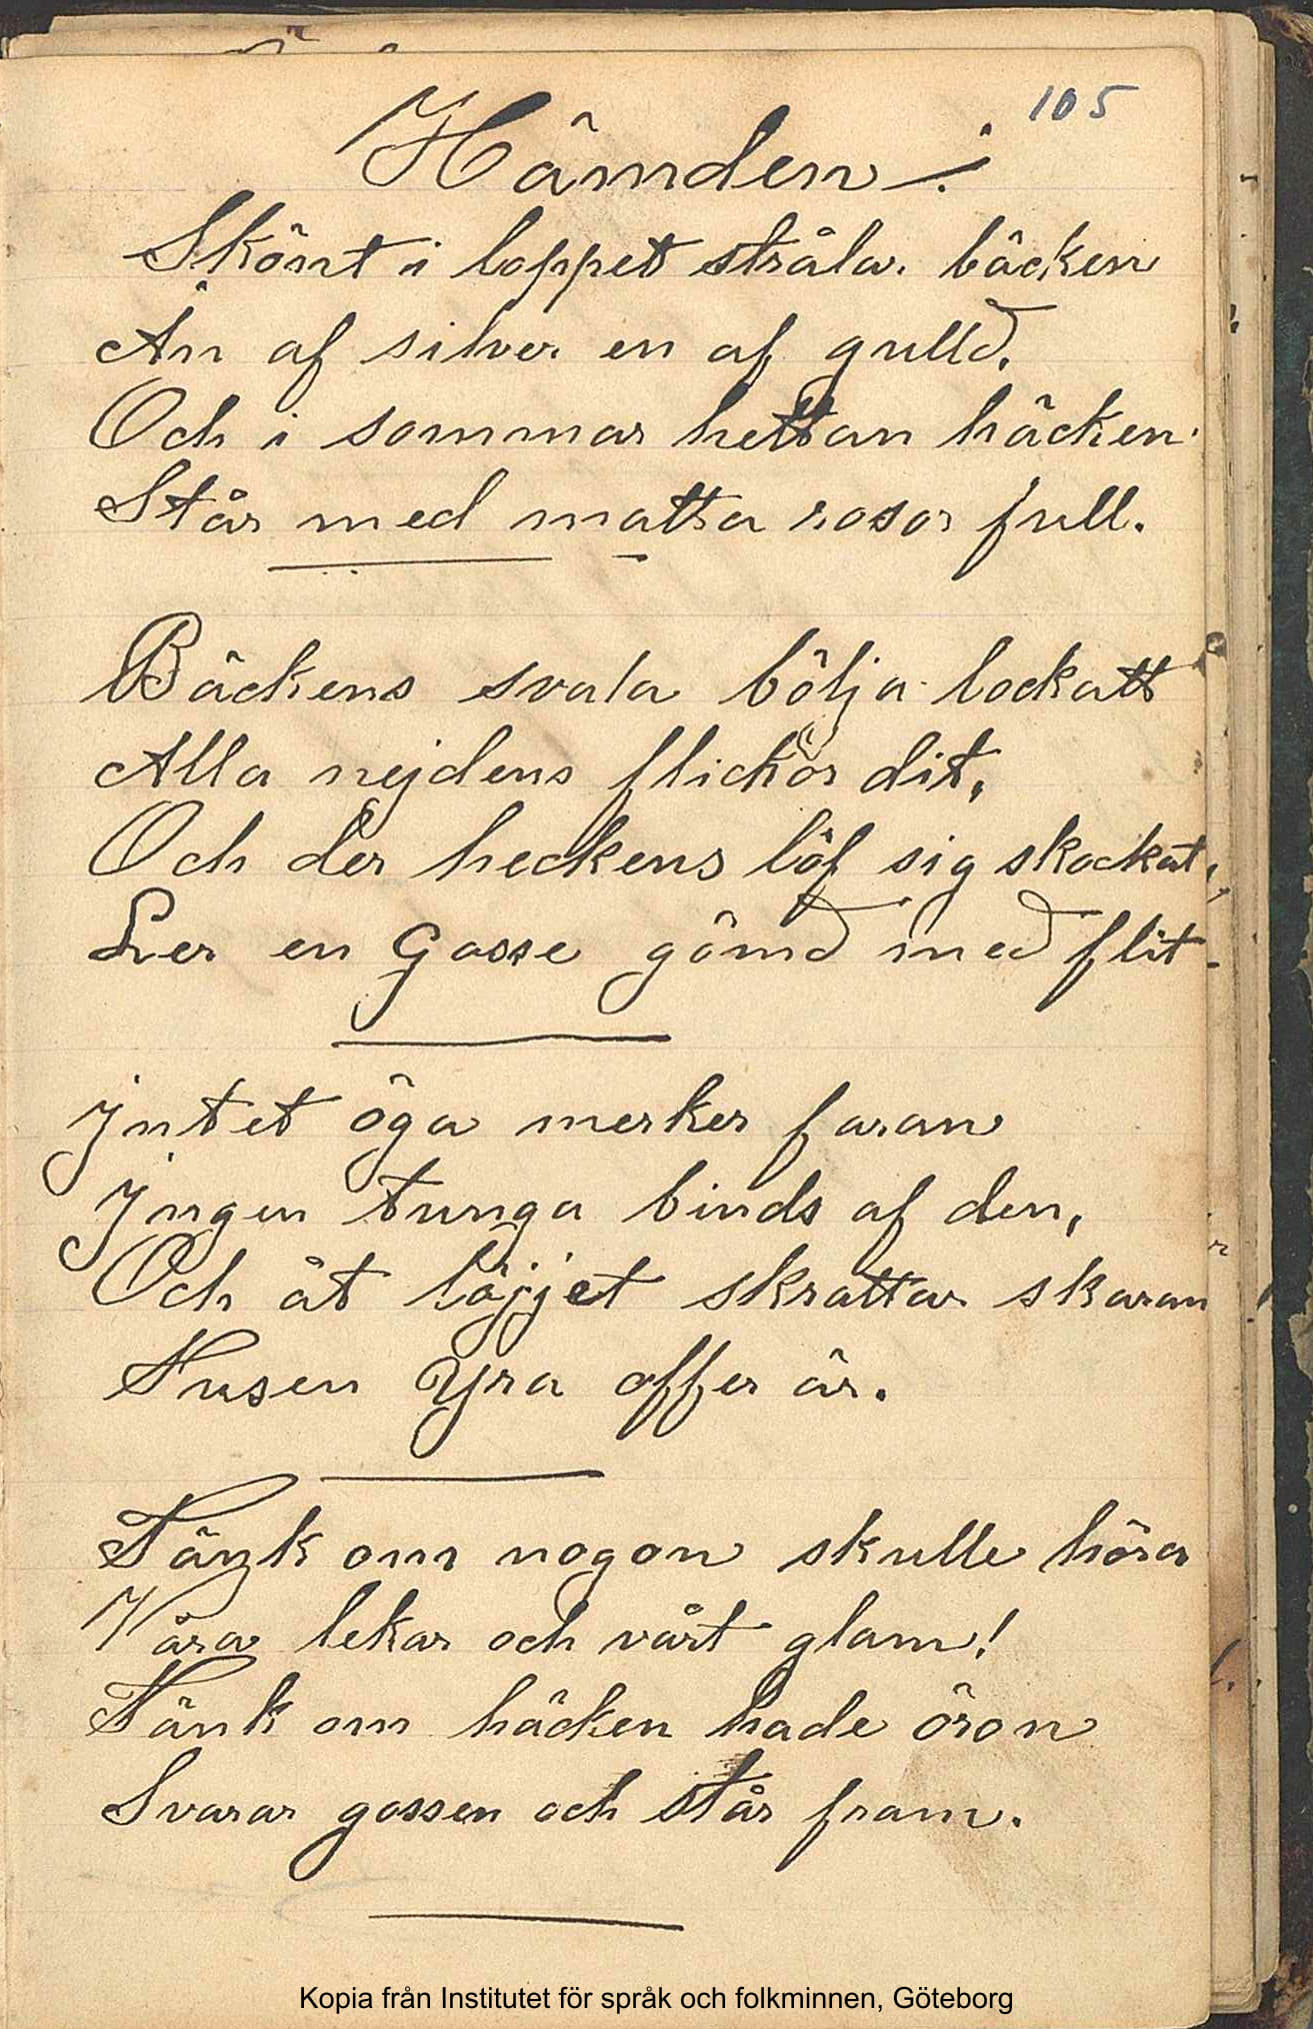 105
Hämden .
Skönt i loppet stråla. bäcken
Än af silver en af gulld.
Och i sommar hettan häcken.
Står med matta rosor full.
Bäckens svala bölja lockatt
Alla nejdens flickor dit,
Och der heckens löf sig skockat,
Ler en Gosse gömd med flit.
Jntet öga merker faran
Jngen tunga binds af den,
Och åt löjjet skrattar skaran
Husen Yra offer är.
Tänk om nogon skulle höra
Våra lekar och vårt glam!
Tänk om häcken hade öron
Svarar gossen och står fram.
Kopia från Institutet för språk och folkminnen, Göteborg